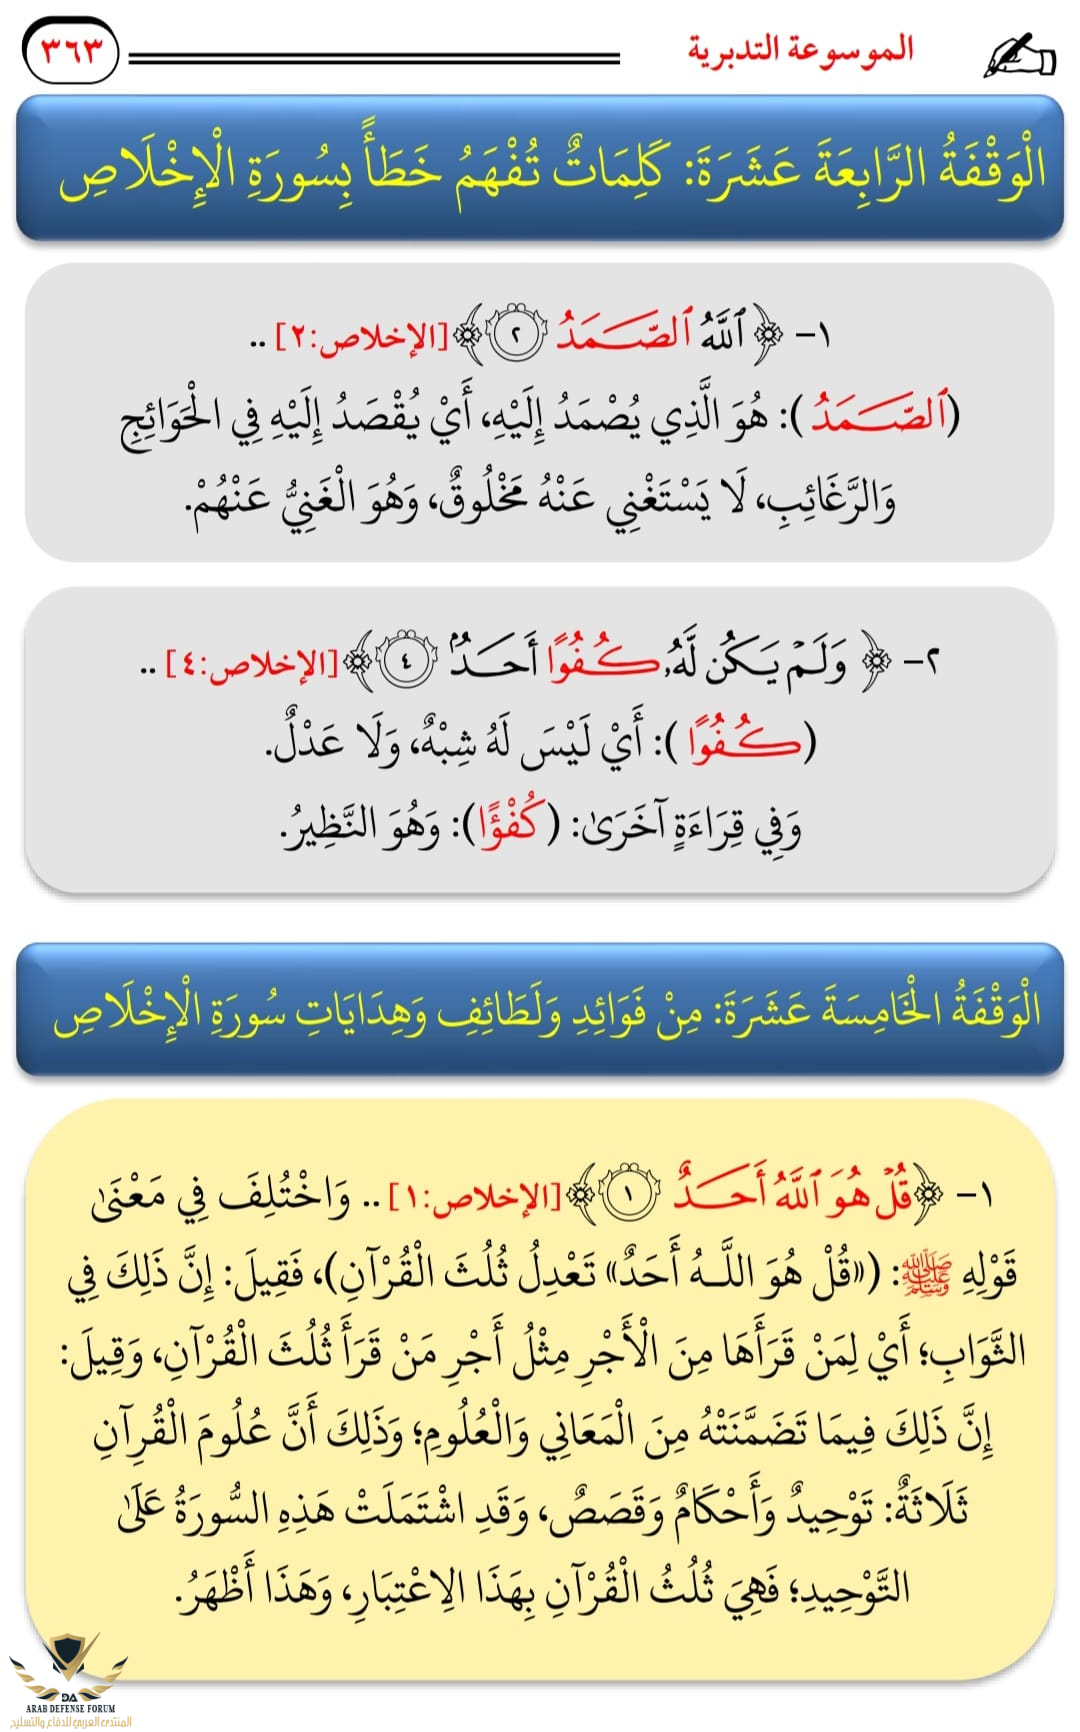 الموسوعة التدبرية
٣٦٣
الْوَقْفَةُ الرَّابِعَةَ عَشَرَةَ: كَلِمَاتٌ تُفْهَمُ خَطَأً بِسُورَةِ الْإِخْلَاصِ
١- ﴿ ٱللَّهُ ٱلصَّمَدُ ٢ ﴾ [الإخلاص:٢] ..
(ٱلصَّمَدُ): هُوَ الَّذِي يُصْمَدُ إِلَيْهِ، أَيْ يُقْصَدُ إِلَيْهِ فِي الْحَوَائِجِ
وَالرَّغَائِبِ، لَا يَسْتَغْنِي عَنْهُ مَخْلُوقٌ، وَهُوَ الْغَنِيُّ عَنْهُمْ.
٢- ﴿ وَلَمْ يَكُن لَّهُۥ كُفُوًا أَحَدٌۢ ٤ ﴾ [الإخلاص:٤] ..
(كُفُوًا): أَيْ لَيْسَ لَهُ شِبْهٌ، وَلَا عَدْلٌ.
وَفِي قِرَاءَةٍ آخَرَىٰ: (كُفْؤًا): وَهُوَ النَّظِيرُ.
الْوَقْفَةُ الْخَامِسَةَ عَشَرَةَ: مِنْ فَوَائِدِ وَلَطَائِفِ وَهِدَايَاتِ سُورَةِ الْإِخْلَاصِ
١- ﴿ قُلْ هُوَ ٱللَّهُ أَحَدٌ ١ ﴾ [الإخلاص:١] .. وَاخْتُلِفَ فِي مَعْنَىٰ
قَوْلِهِ ﷺ: («قُلْ هُوَ اللَّـهُ أَحَدٌ» تَعْدِلُ ثُلُثَ الْقُرْآنِ)، فَقِيلَ: إِنَّ ذَلِكَ فِي
الثَّوَابِ؛ أَيْ لِمَنْ قَرَأَهَا مِنَ الْأَجْرِ مِثْلُ أَجْرِ مَنْ قَرَأَ ثُلُثَ الْقُرْآنِ، وَقِيلَ:
إِنَّ ذَلِكَ فِيمَا تَضَمَّنَتْهُ مِنَ الْمَعَانِي وَالْعُلُومِ؛ وَذَلِكَ أَنَّ عُلُومَ الْقُرِآنِ
ثَلَاثَةٌ: تَوْحِيدٌ وَأَحْكَامٌ وَقَصَصٌ، وَقَدِ اشْتَمَلَتْ هَذِهِ السُّورَةُ عَلَىٰ
التَّوْحِيدِ؛ فَهِيَ ثُلُثُ الْقُرْآنِ بِهَذَا الِاعْتِبَارِ، وَهَذَا أَظْهَرُ.
DA
ARAB DEFENSE FORUM
المنتدى العربي للدفاع والتسليح